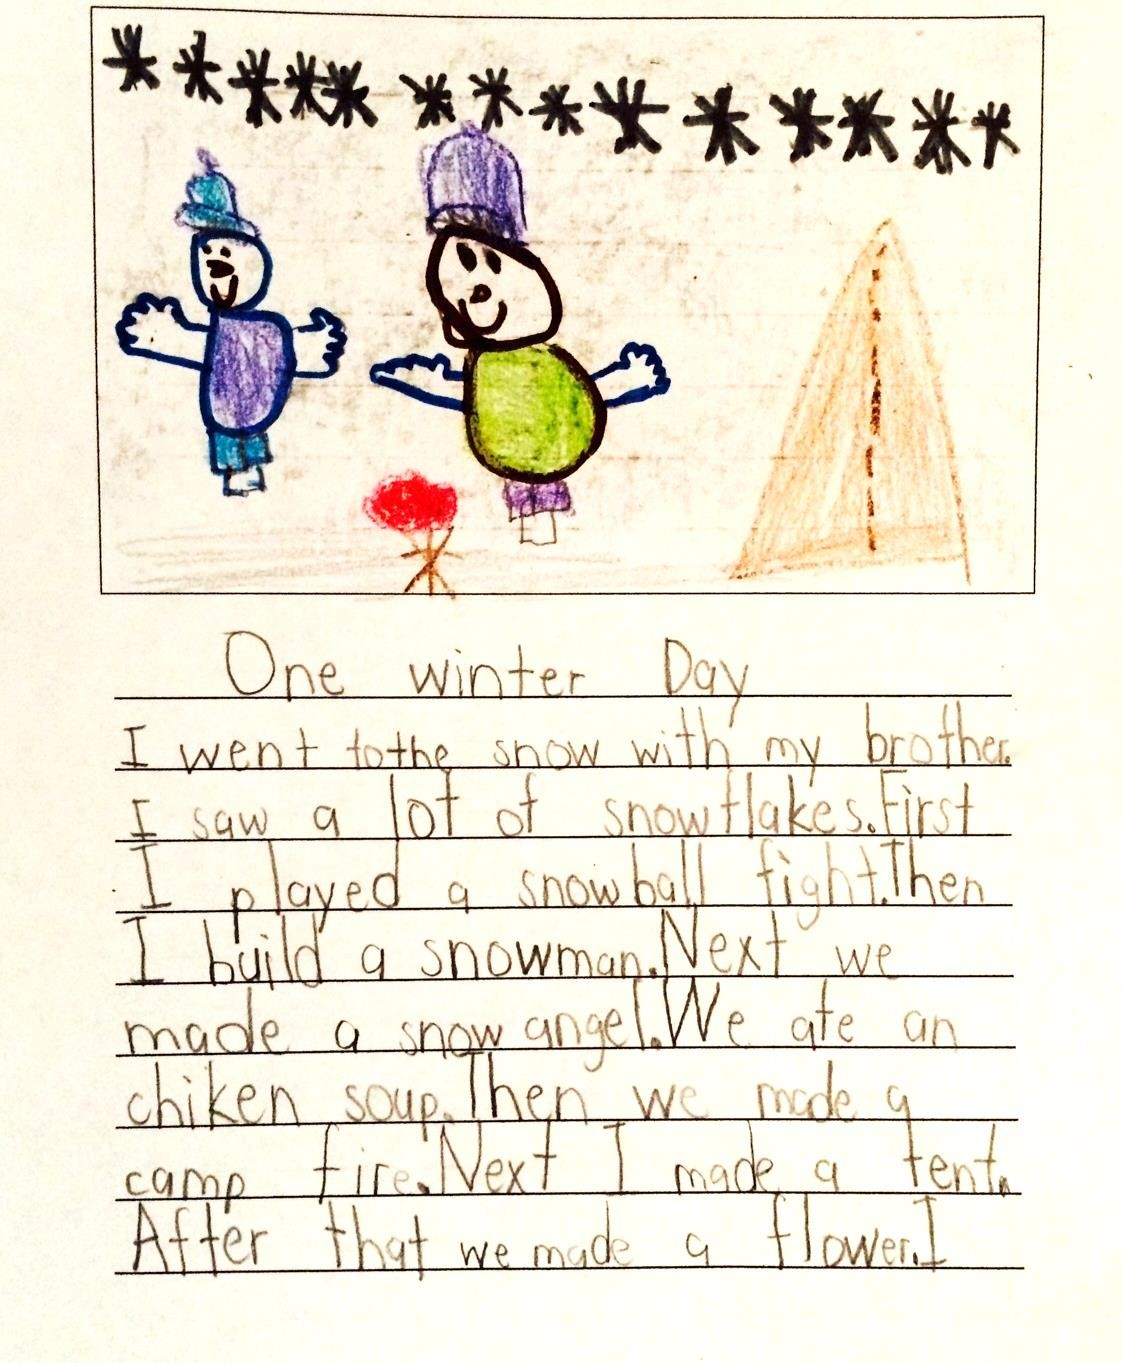 One winter Day
I went to the snow with my brother.
I saw a lot of snowflakes. First
I played a snowball fight. Then
I build a snowman. Next we
made a snow angel. We ate an
chiken soup. Then we made a
camp fire. Next I made a tent.
After that we made a flower. I